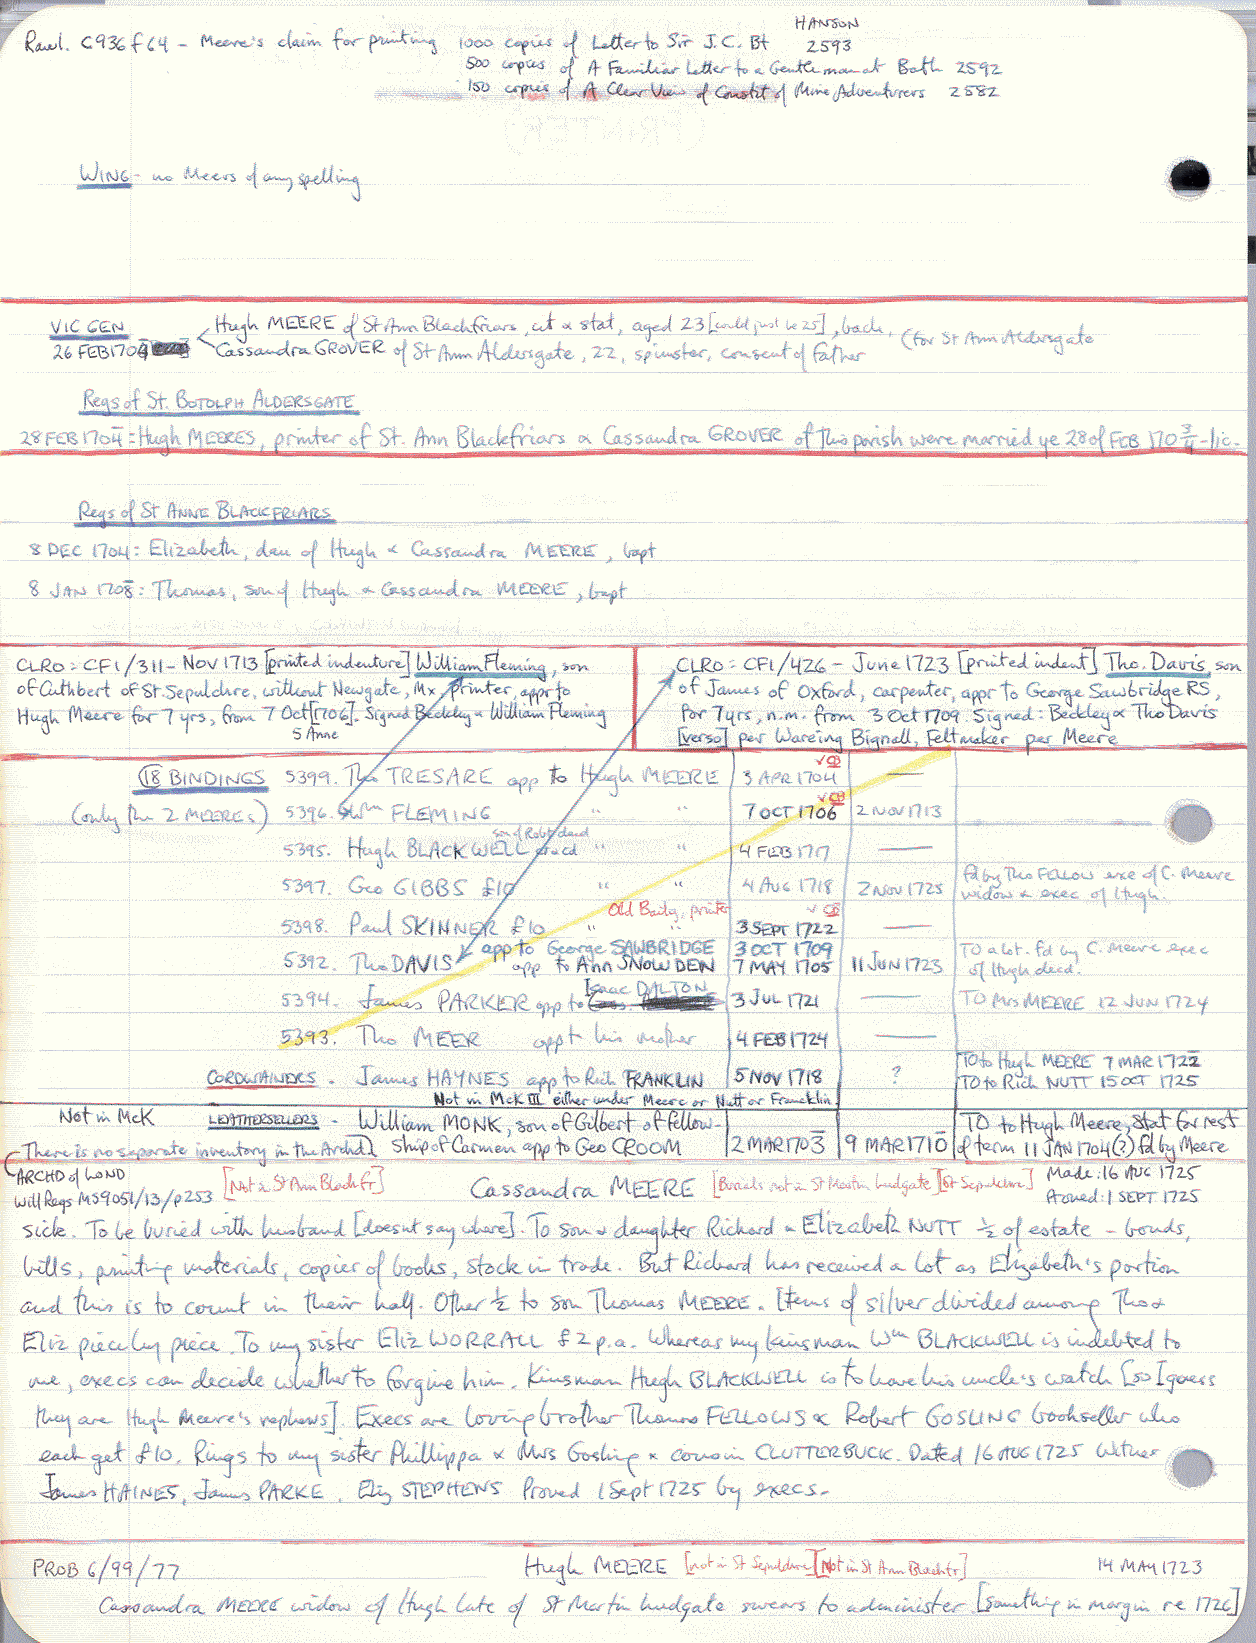 HANSON
Rawl. C936 f 64 - Meere's claim for printing 1000 copies of Letter to Sir J.C. Bt 2593
500 copies of A Familiar Letter to a Gentleman at Bath 2592
150 copies of A Clear View of Constit of Mine Adventurers 2582
WING - no Meers of any spelling
VIC GEN
26 FEB 1704
Hugh MEERE of St Ann Blackfriars, cit & stat, aged 23 [could just be 25], bach. (for St Ann Aldersgate
Cassandra GROVER of St Ann Aldersgate, 22, spinster, consent of father
Regs of St. BOTOLPH ALDERSGATE
28 FEB 1704 = Hugh MEERES, printer of St. Ann Blackfriars & Cassandra GROVER of this parish were married ye 28 of FEB 170 3/4 - lic.
Regs of St ANNE BLACKFRIARS
8 DEC 1704: Elizabeth, dau of Hugh & Cassandra MEERE, bapt
8 JAN 1708: Thomas, son of Hugh & Cassandra MEERE, bapt
CLRO: CF1/311 - NOV 1713 [printed indenture] William Fleming, son
of Cuthbert of St. Sepulchre, without Newgate, Mx, printer, appr to
Hugh Meere for 7 yrs, from 7 Oct [1706]. Signed Beckley & William Fleming
5 Anne
CLRO: CF1/426 - June 1723 [printed indent] Tho. Davis son
of James of Oxford, carpenter, appr to George Sawbridge RS,
for 7 yrs, n.m. from 3 Oct 1709. Signed: Beckley & Tho Davis
[verso] per Wareing Bignall, Feltmaker per Meere
18 BINDINGS 5399. Tho TRESARE app to Hugh MEERE 3 APR 1704 ✓CB —
(only the 2 MEERES) 5396. Wm FLEMING " " 7 OCT 1706 ✓CB 2 NOV 1713
son of Robt decd
5395. Hugh BLACKWELL " " 4 FEB 1717 —
5397. Geo GIBBS £10 " " 4 AUG 1718 2 NOV 1725 fd by Tho FELLOW exe of C. Meere
widow & exec of Hugh.
Old Baily, printer ✓CB
5398. Paul SKINNER £10 " " 3 SEPT 1722 —
app to George SAWBRIDGE 3 OCT 1709 TO a lot. fd by C. Meere exec
5392. Tho DAVIS app to Ann SNOWDEN 7 MAY 1705 11 JUN 1723 of Hugh decd.
Isaac DALTON
5394. James PARKER app to 3 JUL 1721 — TO Mrs MEERE 12 JUN 1724
5393. Tho MEER app to his mother 4 FEB 1724 —
TO to Hugh MEERE 7 MAR 1722
CORDWAINERS - James HAYNES app to Rich FRANKLIN 5 NOV 1718 ? TO to Rich NUTT 15 OCT 1725
Not in McK III either under Meere or Nutt or Francklin
Not in McK LEATHERSELLERS - William MONK, son of Gilbert of Fellow- TO to Hugh Meere, Stat for rest
There is no separate inventory in the Archd ship of Carmen app to Geo CROOM 2 MAR 1703 9 MAR 1710 of term 11 JAN 1704(?) fd by Meere
ARCHD of LOND
Will Regs MS9051/13/p253 [Not in St Ann Blackfr] Cassandra MEERE [Burials not in St Martin Ludgate] [St Sepulchre] Made: 16 AUG 1725
Proved: 1 SEPT 1725
sick. To be buried with husband [doesnt say where]. To son & daughter Richard & Elizabeth NUTT ½ of estate - bonds,
bills, printing materials, copies of books, stock in trade. But Richard has received a lot as Elizabeth's portion
and this is to count in their half. Other ½ to son Thomas MEERE. Items of silver divided among Tho &
Eliz piece by piece. To my sister Eliz WORRALL £2 p.a. Whereas my kinsman Wm BLACKWELL is indebted to
me, execs can decide whether to forgive him. Kinsman Hugh BLACKWELL is to have his uncle's watch [so I guess
they are Hugh Meere's nephews]. Execs are loving brother Thomas FELLOWS & Robert GOSLING bookseller who
each get £10. Rings to my sister Phillippa & Mrs Gosling & cousin CLUTTERBUCK. Dated 16 AUG 1725 Witnes
James HAINES, James PARKE. Eliz STEPHENS Proved 1 Sept 1725 by execs.
PROB 6/99/77 Hugh MEERE [not in St Sepulchre] [Not in St Ann Blackfr] 14 MAY 1723
Cassandra MEERE widow of Hugh late of St Martin Ludgate swears to administer. [something in margin re 1726]